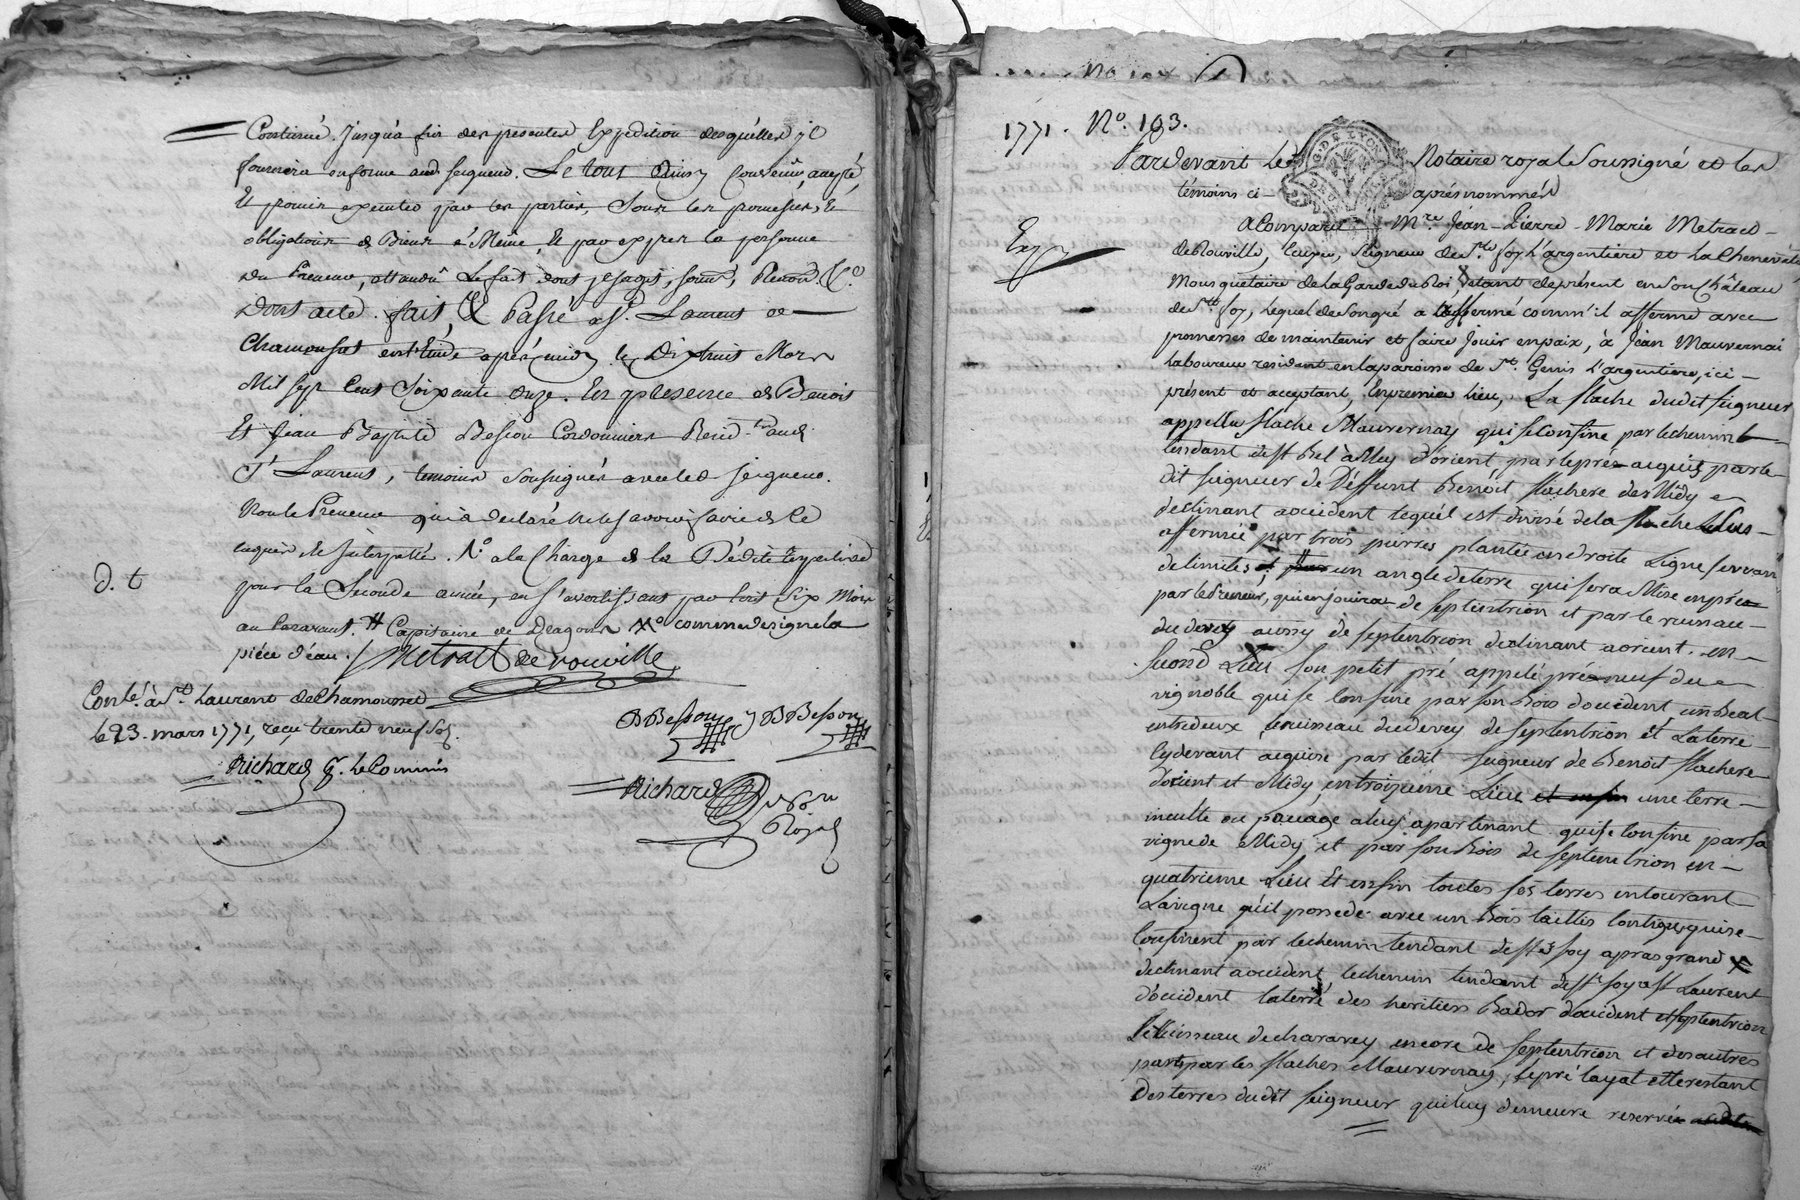 Continué jusqu'a fin des presentes Expedition desquelles il
fournira en forme aud seigneur. Le tout Ainsy Convenu, accepté,
Et promis executer par les parties, sous les promesses, Et
obligations de Biens & Même, Et par exprès la personne
du Preneur, attandû le fait dont s'agit, soum, Renon. &c.
Dont acte. fait & Passé a St. Laurent de
Chamousset en l'Etude aprés midy le Dixhuit Mars
Mil sept Cent Soixante onze. En presence de Benoit
Et Jean Baptiste Besson Cordonniers Resid.ts aud
St Laurent, temoins Soussignés avec led seigneur.
Non le Preneur qui a declaré ne le savoir faire de ce
requis et Interpellé. N.o a la Charge de la Dédite
pour la Seconde année, en s'avertissant par Ecrit Six Mois
au Paravant. # Capitaine de Dragons X° comme designe la
piéce d'eau.
d. t
Metrall de rouville
Con.lé à St. Laurent de Chamousset
le 23. mars 1771, reçu trente neuf sols.
Richard G. le Commis
BBesson JBBesson
Richard
Royal
1771. N°. 193.
Pardevant le Notaire royal Soussigné et les
témoins ci- aprés nommés
Exp
A Comparu Mre. Jean-Pierre-Marie Metrael-
de Rouville, Ecuyer, Seigneur de Ste foy l'argentiere et La Chenevate
Mousquétaire de la Garde du Roi, étant de présent en son Château
de Ste foy, lequel de son gré a afferme comm'il afferme avec
promesses de maintenir et faire Jouir en paix, à Jean Mauvernai
Laboureur resident en la paroisse de St. Genis l'argentiere, ici-
présent et acceptant, En premier lieu, La flache dudit seigneur
appellee flache Mauvernay qui se Confine par le chemin
tendant de St Bel à Mey d'orient, par le pré acquis par le-
dit seigneur de Déffunt Benoit flachere des Midy
declinant accident lequel est divisé de la flache
affermée par trois pierres plantée en droite Ligne servant
de limites, un angle de terre qui sera Mise en pré
par le Preneur, qui en jouira de Septentrion et par le ruisseau-
du devey aussy de Septentrion declinant a orient. en-
Second Lieu son petit pré appelé pré neuf du
vignoble qui se Confine par son Bois d'occident, un Beal-
entredeux, ruisseau du devey de Septentrion et La terre
cydevant acquise par ledit seigneur de Benoit flachere
d'orient et Midy, en troizieme Lieu et enfin une terre-
inculte ou pacage a luy apartenant qui se Confine par sa
vigne de Midy et par son Bois de Septentrion en-
quatrieme Lieu Et enfin toutes ses terres entourant
La vigne qu'il possede avec un Bois taillis contigu qui se-
Confinent par le chemin tendant de Ste foy a pras grand X
declinant a occident, le chemin tendant de Ste foy a St Laurent
d'occident la terre des heritiers Bador d'occident et Septentrion
Le Ruisseau de charavey encore de Septentrion et des autres
parts par les flaches Mauvernay, le pré layat et le restant
Des terres dudit seigneur qui luy demeure reservée